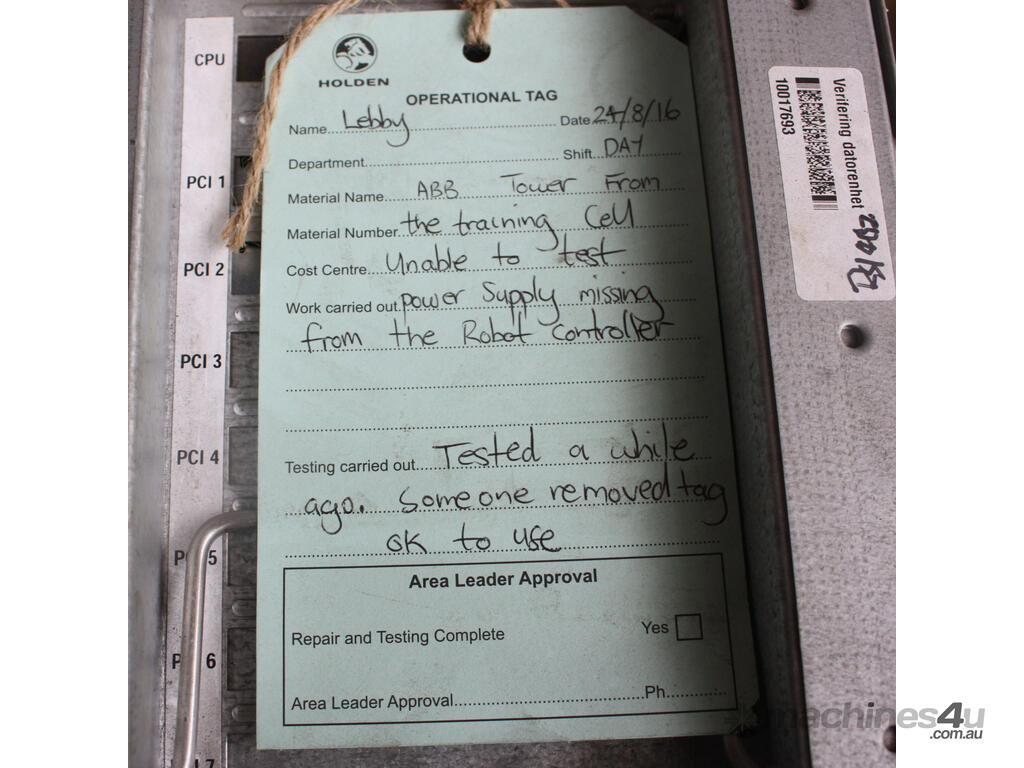 CPU
PCI 1
PCI 2
PCI 3
PCI 4
PCI 5
PCI 6
HOLDEN
OPERATIONAL TAG
Name Lebby Date 24/8/16
Department Shift DAY
Material Name ABB Tower From
Material Number the training Cell
Cost Centre Unable to test
Work carried out power Supply missing
from the Robot controller
Testing carried out Tested a while
ago. Someone removed tag
ok to use
Area Leader Approval
Repair and Testing Complete Yes
Area Leader Approval Ph
Verifering datorenhet
10017693
machines4u
.com.au